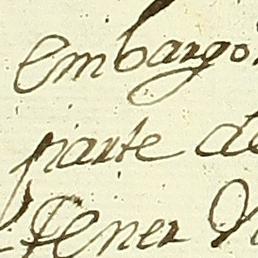 embargo
parte de
tener